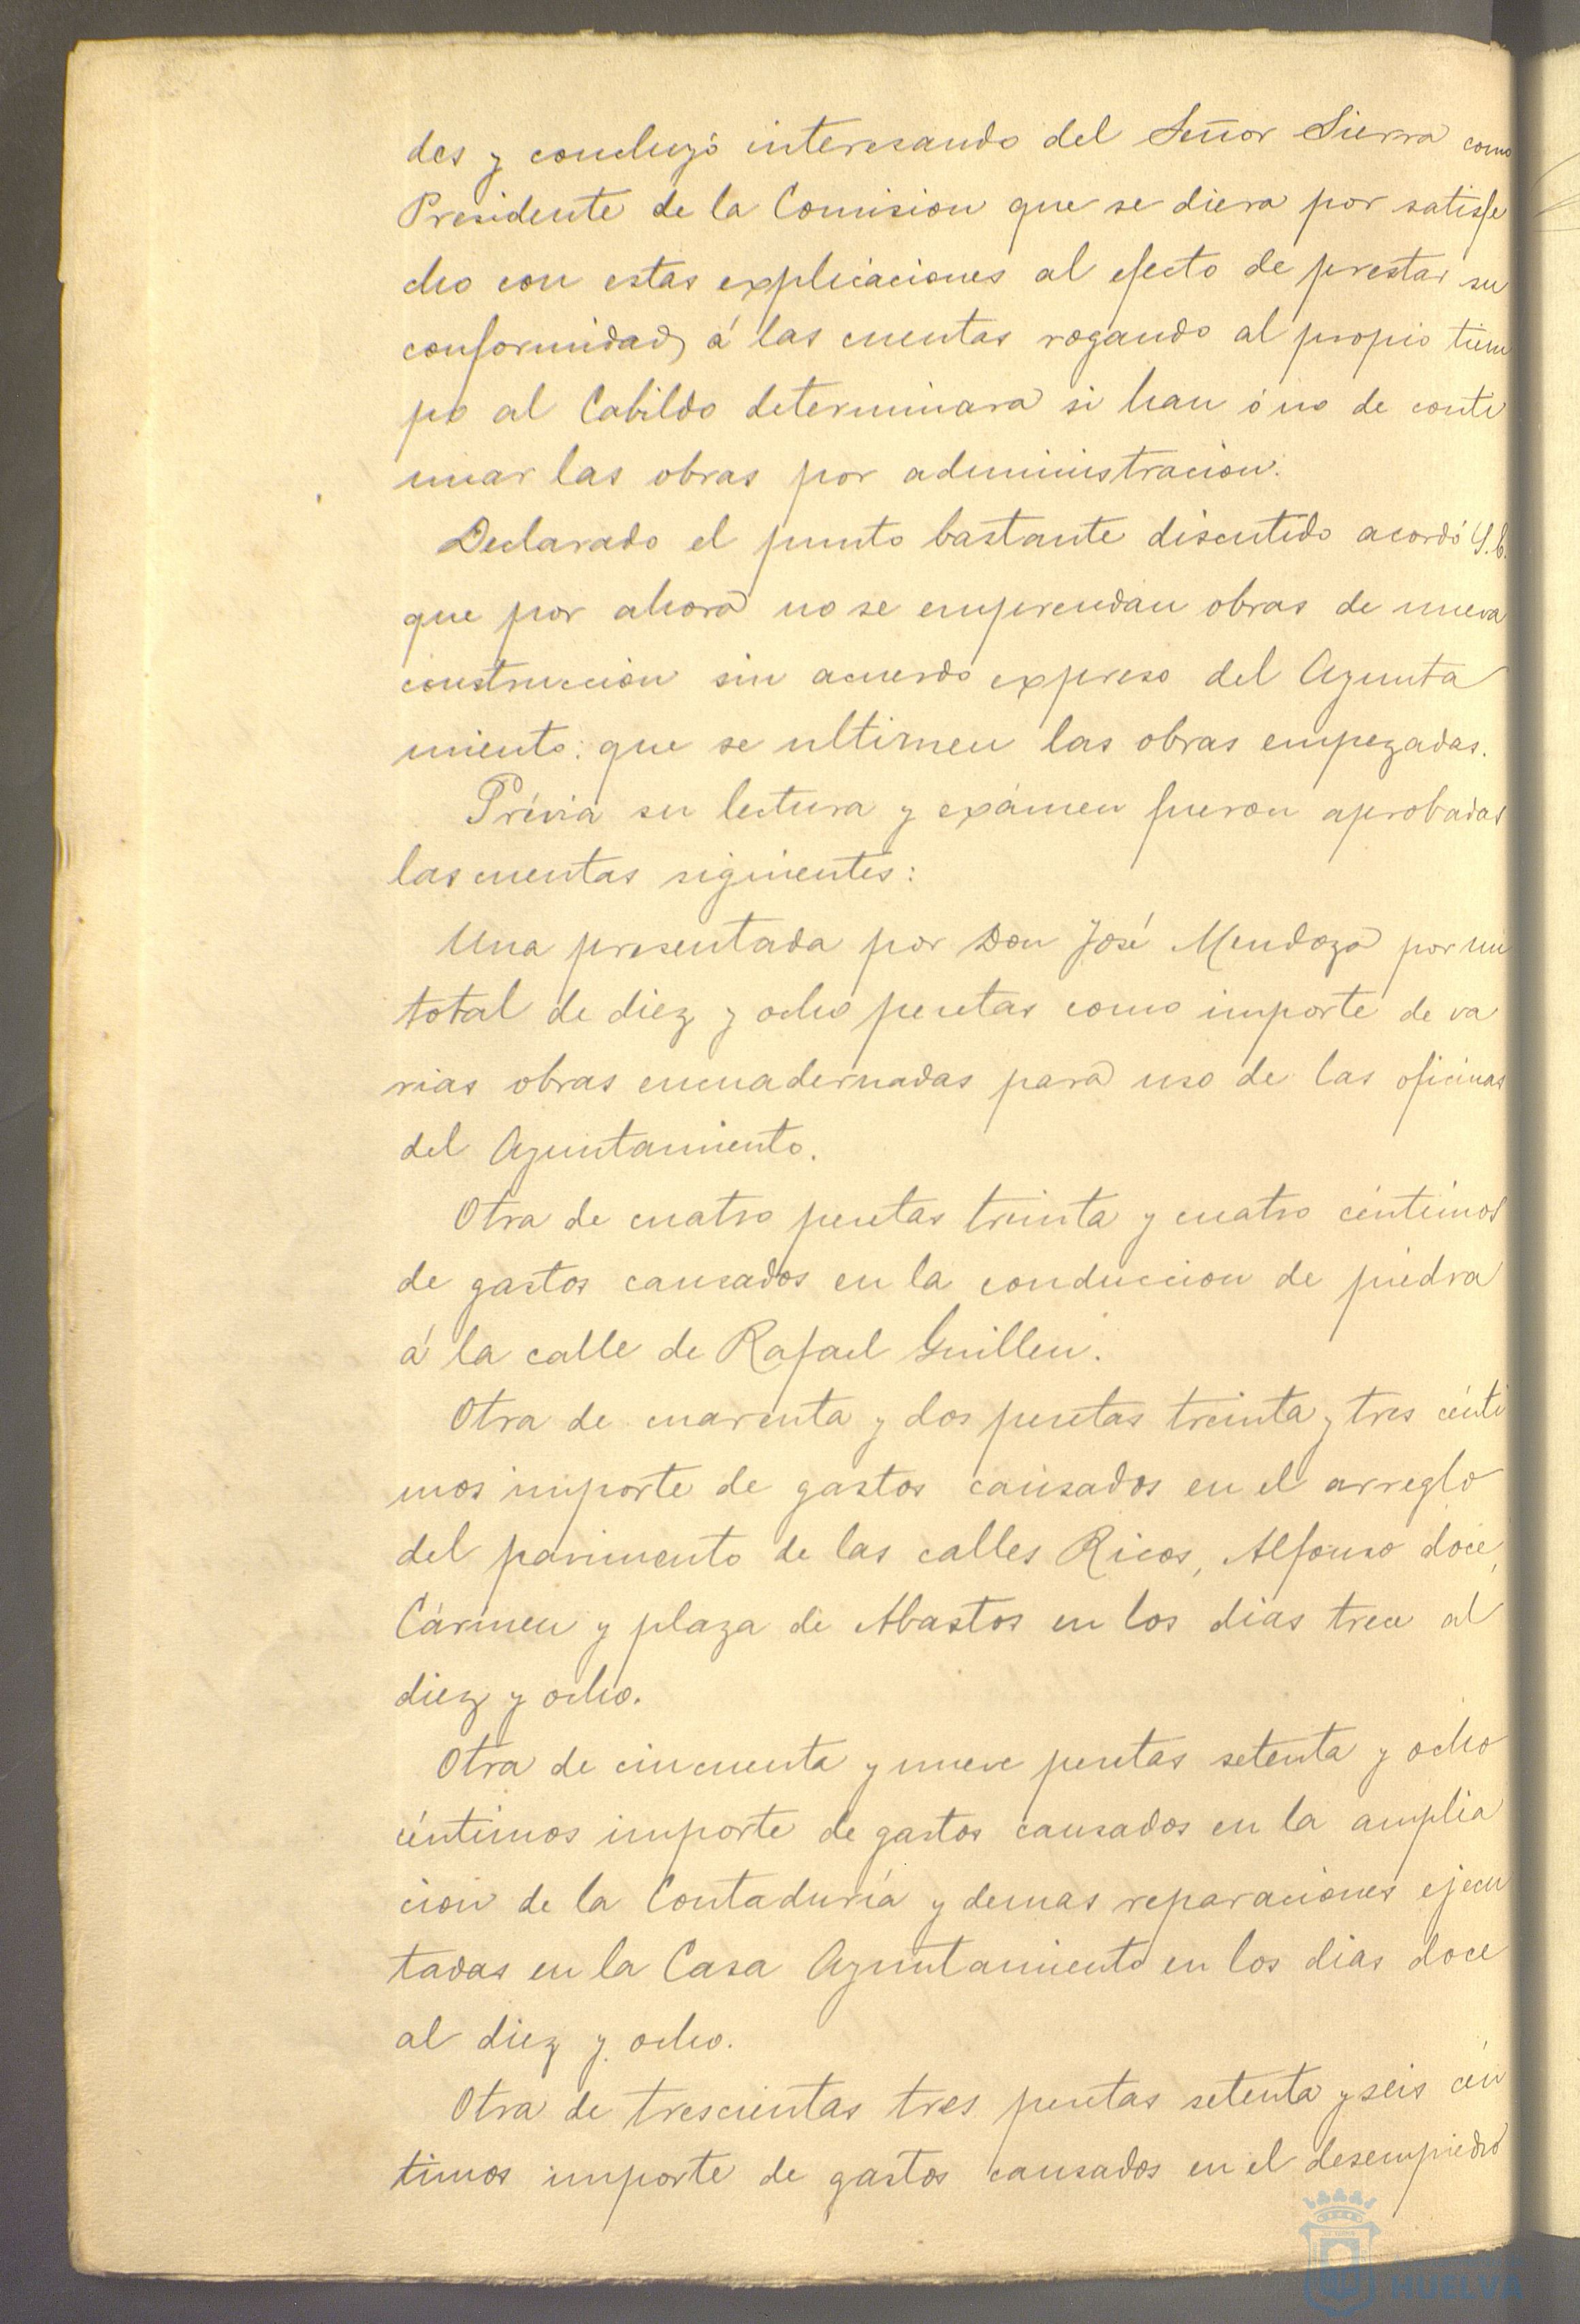 des y concluyó interesando del Señor Sierra como
Presidente de la Comision que se diera por satisfe
cho con estas explicaciones al efecto de prestar su
conformidad á las cuentas rogando al propio tiem
po al Cabildo determinara si han ó no de conti
nuar las obras por administracion.
Declarado el punto bastante discutido acordó S.E.
que por ahora no se emprendan obras de nueva
construccion sin acuerdo expreso del Ayunta
miento: que se ultimen las obras empezadas.
Prévia su lectura y exámen fueron aprobadas
las cuentas siguientes:
Una presentada por Don José Mendoza por un
total de diez y ocho pesetas como importe de va
rias obras encuadernadas para uso de las oficinas
del Ayuntamiento.
Otra de cuatro pesetas treinta y cuatro céntimos
de gastos causados en la conduccion de piedra
á la calle de Rafael Guillen.
Otra de cuarenta y dos pesetas treinta y tres cénti
mos importe de gastos causados en el arreglo
del pavimento de las calles Ricos, Alfonso doce,
Cármen y plaza de Abastos en los dias trece al
diez y ocho.
Otra de cincuenta y nueve pesetas setenta y ocho
céntimos importe de gastos causados en la amplia
cion de la Contaduría y demas reparaciones ejecu
tadas en la Casa Ayuntamiento en los dias doce
al diez y ocho.
Otra de trescientas tres pesetas setenta y seis cén
timos importe de gastos causados en el desempiedro
HUELVA